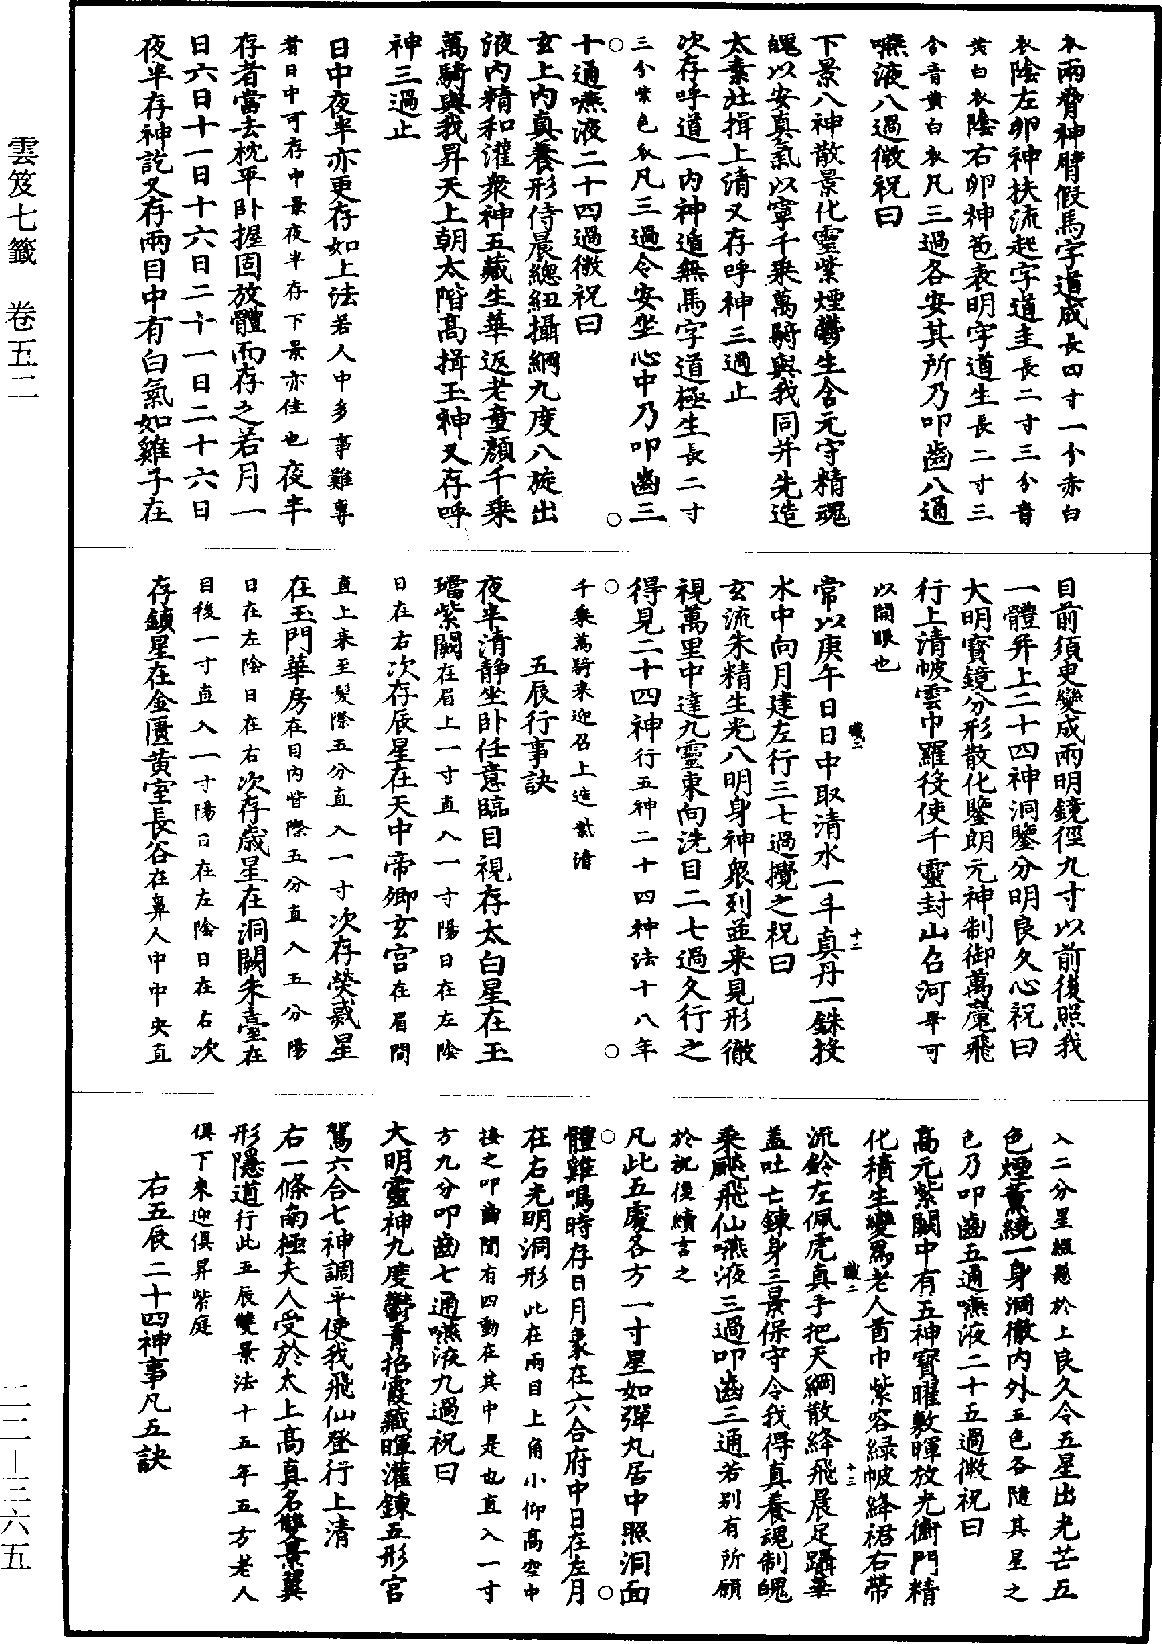 衣兩脅神臂假馬字道成長四寸一分赤白
衣陰左卵神扶流起字道圭長二寸三分青
黃白衣陰右卵神苞表明字道生長二寸三
分青黃白衣凡三過各安其所乃叩齒八通
嚥液八過微祝曰
下景八神散景化靈紫煙鬱生含元守精魂
魄以安真氣以寧千乘萬騎與我同并先造
太素北揖上清又存呼神三過止
次存呼道一內神遁無馬字道極生長二寸
三分紫色衣凡三過令安坐心中乃叩齒三
十通嚥液二十四過微祝曰
玄上內真養形侍晨總紐攝綱九度八旋出
液內精和灌衆神五藏生華返老童顏千乘
萬騎與我昇天上朝太階高揖玉神又存呼
神三過止
日中夜半亦更存如上法若人中多事難專
者日中可存中景夜半存下景亦佳也夜半
存者當去枕平卧握固放體而存之若月一
日六日十一日十六日二十一日二十六日
夜半存神訖又存兩目中有白氣如雞子在
目前須臾變成兩明鏡徑九寸以前後照我
一體并上二十四神洞鑒分明良久心祝曰
大明寶鏡分形散化鑒朗元神制御萬魔飛
行上清帔雲巾羅役使千靈封山召河畢可
以開眼也
常以庚午日日中取清水一斗真丹一銖投
水中向月建左行三七過攪之祝曰
玄流朱精生光八明身神衆列並來見形徹
視萬里中達九靈東向洗目二七過久行之
得見二十四神行五神二十四神法十八年
千乘萬騎來迎召上造太清
五辰行事訣
夜半清靜坐卧任意臨目視存太白星在玉
璫紫闕在眉上一寸直入一寸陽日在左陰
日在右次存辰星在天中帝鄉玄宮在眉間
直上來至髮際五分直入一寸次存熒惑星
在玉門華房在目內眥際五分直入五分陽
日在左陰日在右次存歲星在洞闕朱臺在
目後一寸直入一寸陽日在左陰日在右次
存鎮星在金匱黃室長谷在鼻人中中央直
入二分星綴懸於上良久令五星出光芒五
色煙薰繞一身洞徹內外五色各隨其星之
色乃叩齒五通嚥液二十五過微祝曰
高元紫闕中有五神寶曜敷暉放光衝門精
化積生變爲老人首巾紫容綠帔絳裙右帶
流鈴左佩虎真手把天綱散絳飛晨足躡華
蓋吐亡鍊身三景保守令我得真養魂制魄
乘飈飛仙嚥液三過叩齒三通若別有所願
於祝後續言之
凡此五處各方一寸星如彈丸居中照洞面
體雞鳴時存日月象在六合府中日在左月
在右光明洞形此在兩目上角小仰高空中
按之叩齒間有四動在其中是也直入一寸
方九分叩齒七通嚥液九過祝曰
大明靈神九度鬱青招霞藏暉灌鍊五形宮
駕六合七神調平使我飛仙登行上清
右一條南極夫人受於太上高真名雙景翼
形隱道行此五辰雙景法十五年五方老人
俱下來迎俱昇紫庭
右五辰二十四神事凡五訣
雲笈七籤 卷五二
二二—三六五